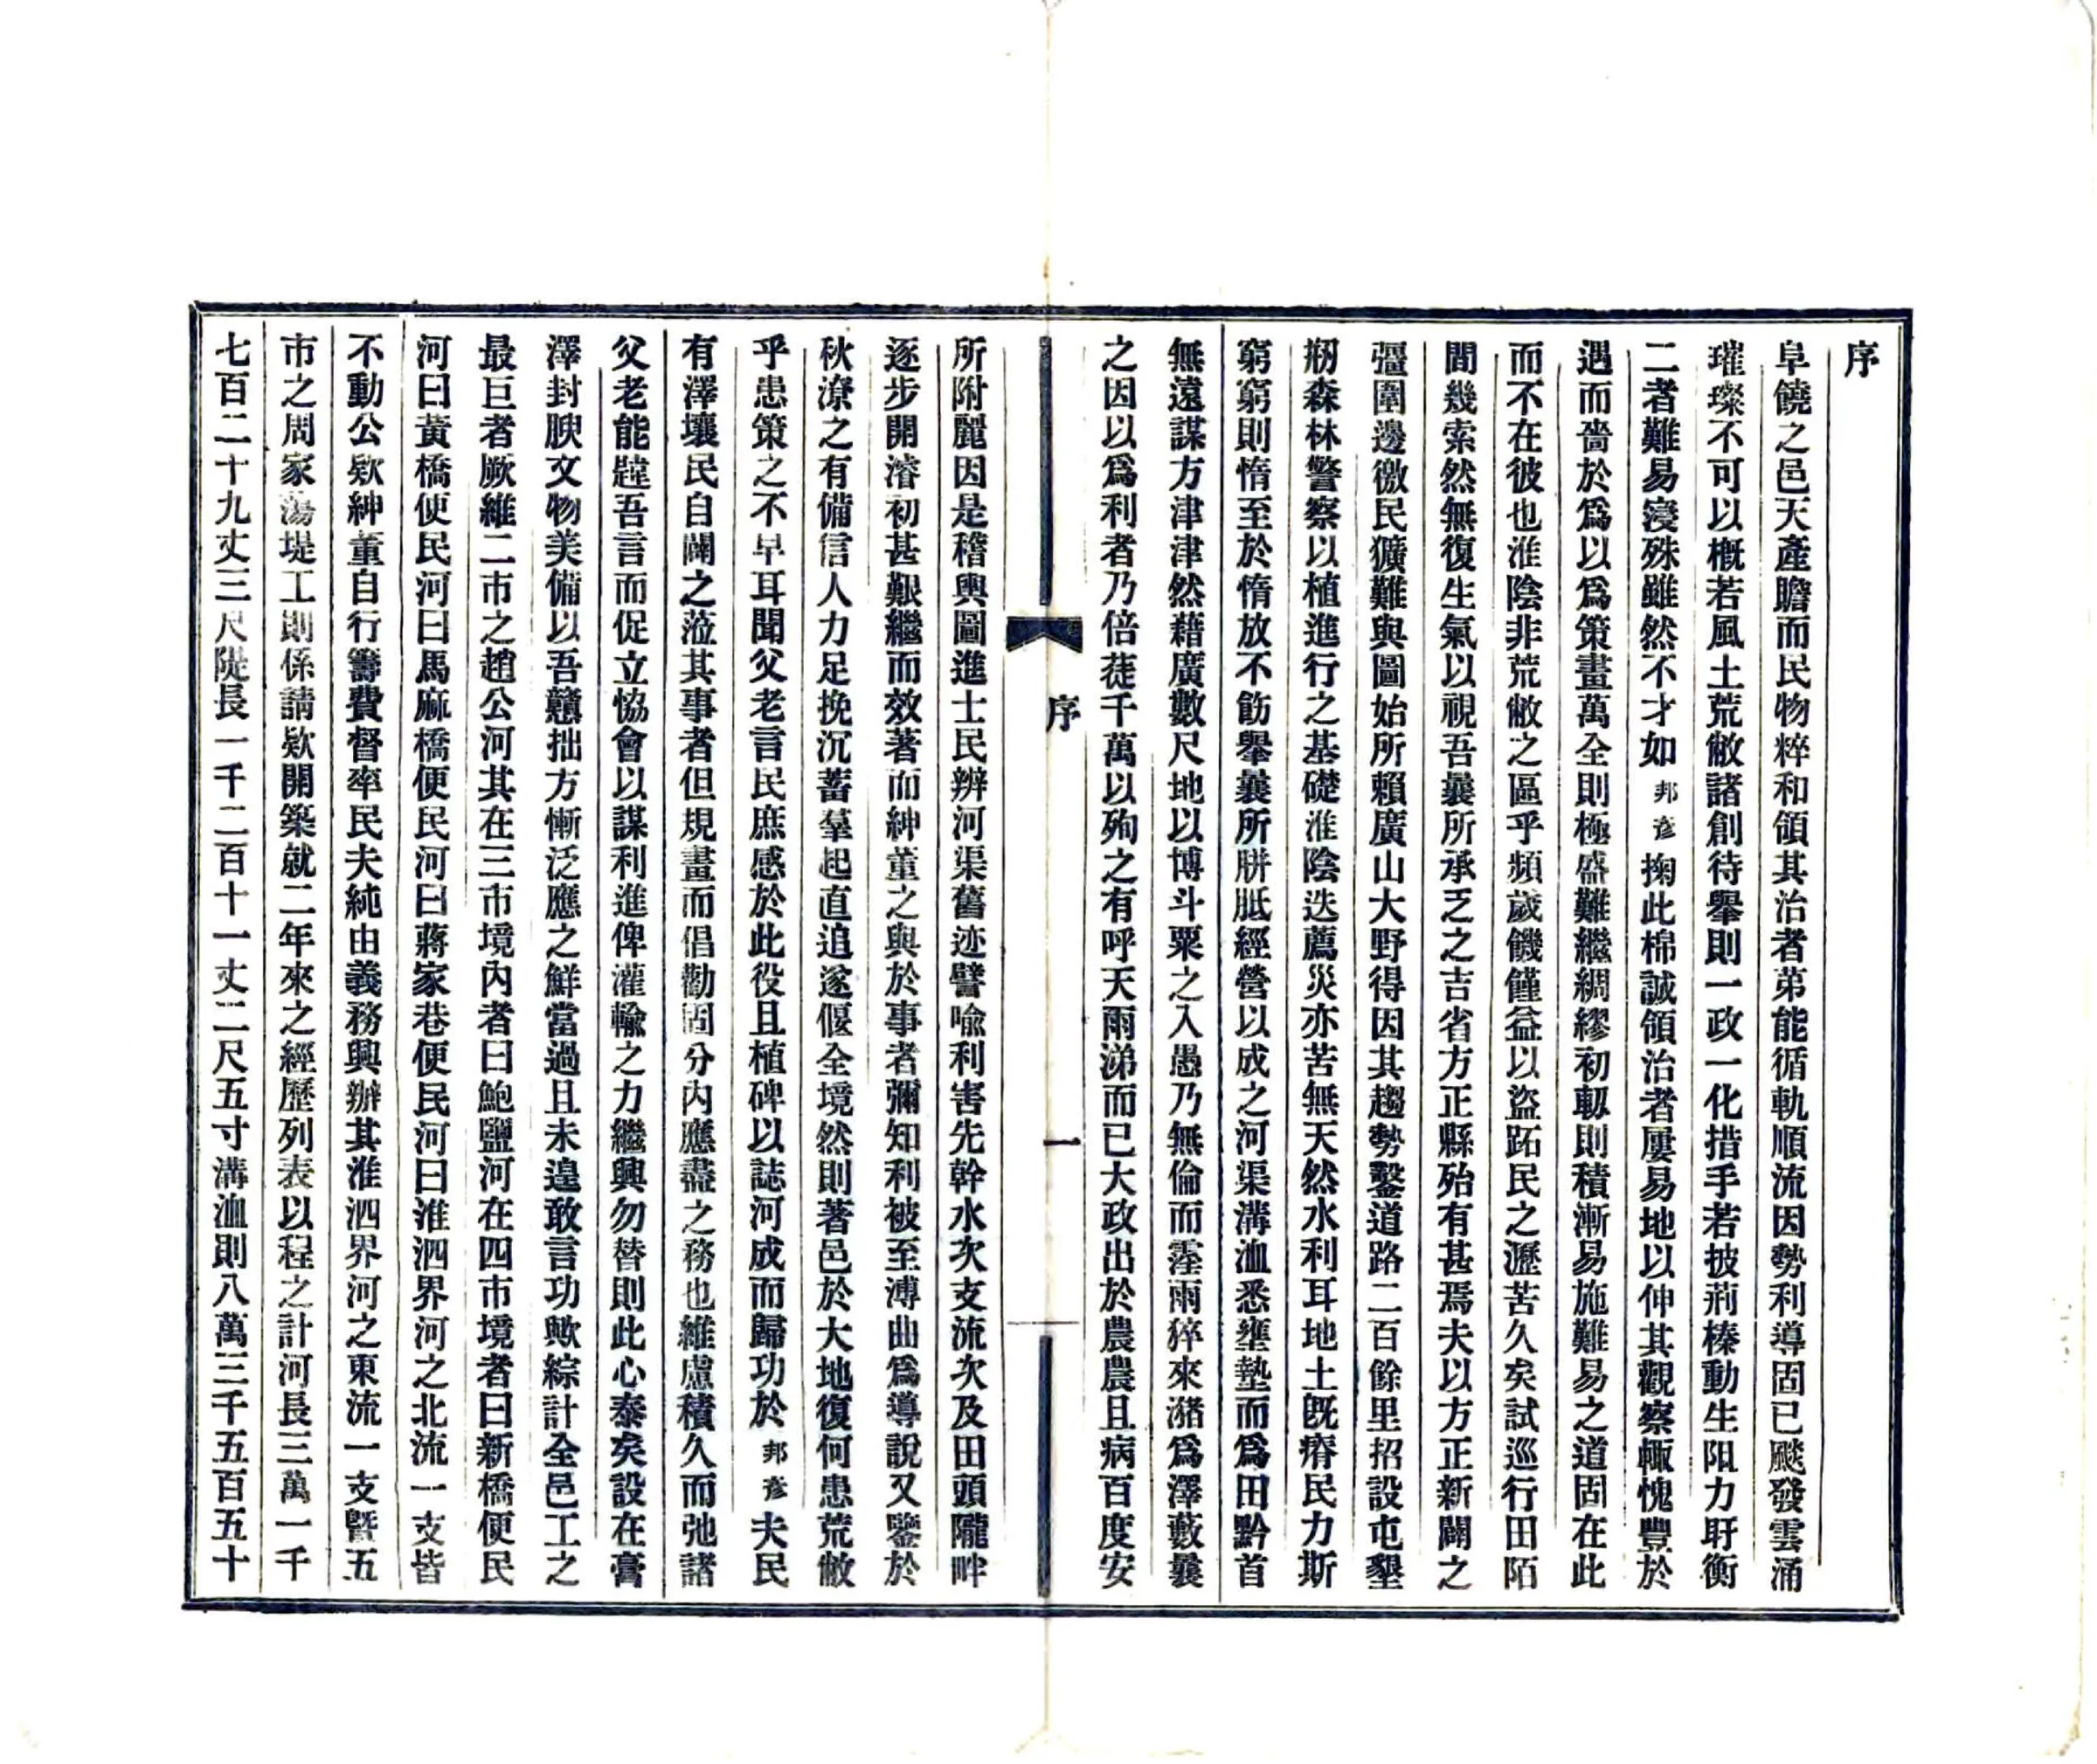 序
阜饒之邑天產贍而民物粹和領其治者苐能循軌順流因勢利導固已飈發雲涌
璀璨不可以概若風土荒敝諸創待舉則一政一化措手若披荊榛動生阻力盱衡
二者難易寖殊雖然不才如邦彥掬此棉誠領治者屢易地以伸其觀察輒愧豐於
遇而嗇於爲以爲策畫萬全則極盛難繼綢繆初軔則積漸易施難易之道固在此
而不在彼也淮陰非荒敝之區乎頻歲饑饉益以盜跖民之瀝苦久矣試巡行田陌
間幾索然無復生氣以視吾曩所承乏之吉省方正縣殆有甚焉夫以方正新闢之
彊圉邊徼民獷難與圖始所賴廣山大野得因其趨勢鑿道路二百餘里招設屯墾
剏森林警察以植進行之基礎淮陰迭薦災亦苦無天然水利耳地土既瘠民力斯
窮窮則惰至於惰放不飭舉曩所胼胝經營以成之河渠溝洫悉壅墊而爲田黔首
無遠謀方津津然藉廣數尺地以博斗粟之入愚乃無倫而霪雨猝來瀦爲澤藪曩
之因以爲利者乃倍蓰千萬以殉之有呼天雨涕而已大政出於農農且病百度安
序
一
所附麗因是稽輿圖進士民辨河渠舊迹譬喩利害先幹水次支流次及田頭隴畔
逐步開濬初甚艱繼而效著而紳董之與於事者彌知利被至溥曲爲導說又鑒於
秋潦之有備信人力足挽沉蓄羣起直追遂偃全境然則著邑於大地復何患荒敝
乎患策之不早耳聞父老言民庶感於此役且植碑以誌河成而歸功於邦彥夫民
有澤壤民自闢之蒞其事者但規畫而倡勸固分內應盡之務也維慮積久而弛諸
父老能韙吾言而促立恊會以謀利進俾灌輸之力繼興勿替則此心泰矣設在膏
澤封腴文物美備以吾戇拙方慚泛應之鮮當過且未遑敢言功歟綜計全邑工之
最巨者厥維二市之趙公河其在三市境內者曰鮑鹽河在四市境者曰新橋便民
河曰黃橋便民河曰馬麻橋便民河曰蔣家巷便民河曰淮泗界河之北流一支皆
不動公欵紳董自行籌費督率民夫純由義務興辦其淮泗界河之東流一支曁五
市之周家蕩堤工則係請欵開築就二年來之經歷列表以程之計河長三萬一千
七百二十九丈三尺隄長一千二百十一丈二尺五寸溝洫則八萬三千五百五十